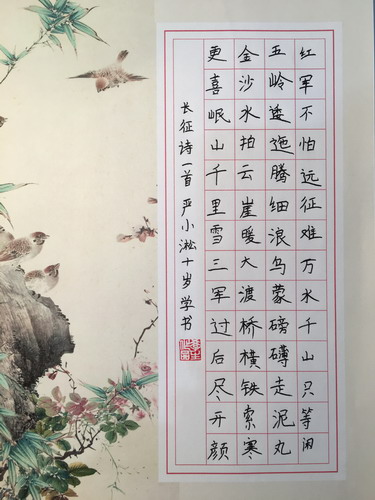 红军不怕远征难万水千山只等闲
五岭逶迤腾细浪乌蒙磅礴走泥丸
金沙水拍云崖暖大渡桥横铁索寒
更喜岷山千里雪三军过后尽开颜
长征诗一首 严小淞十岁学书